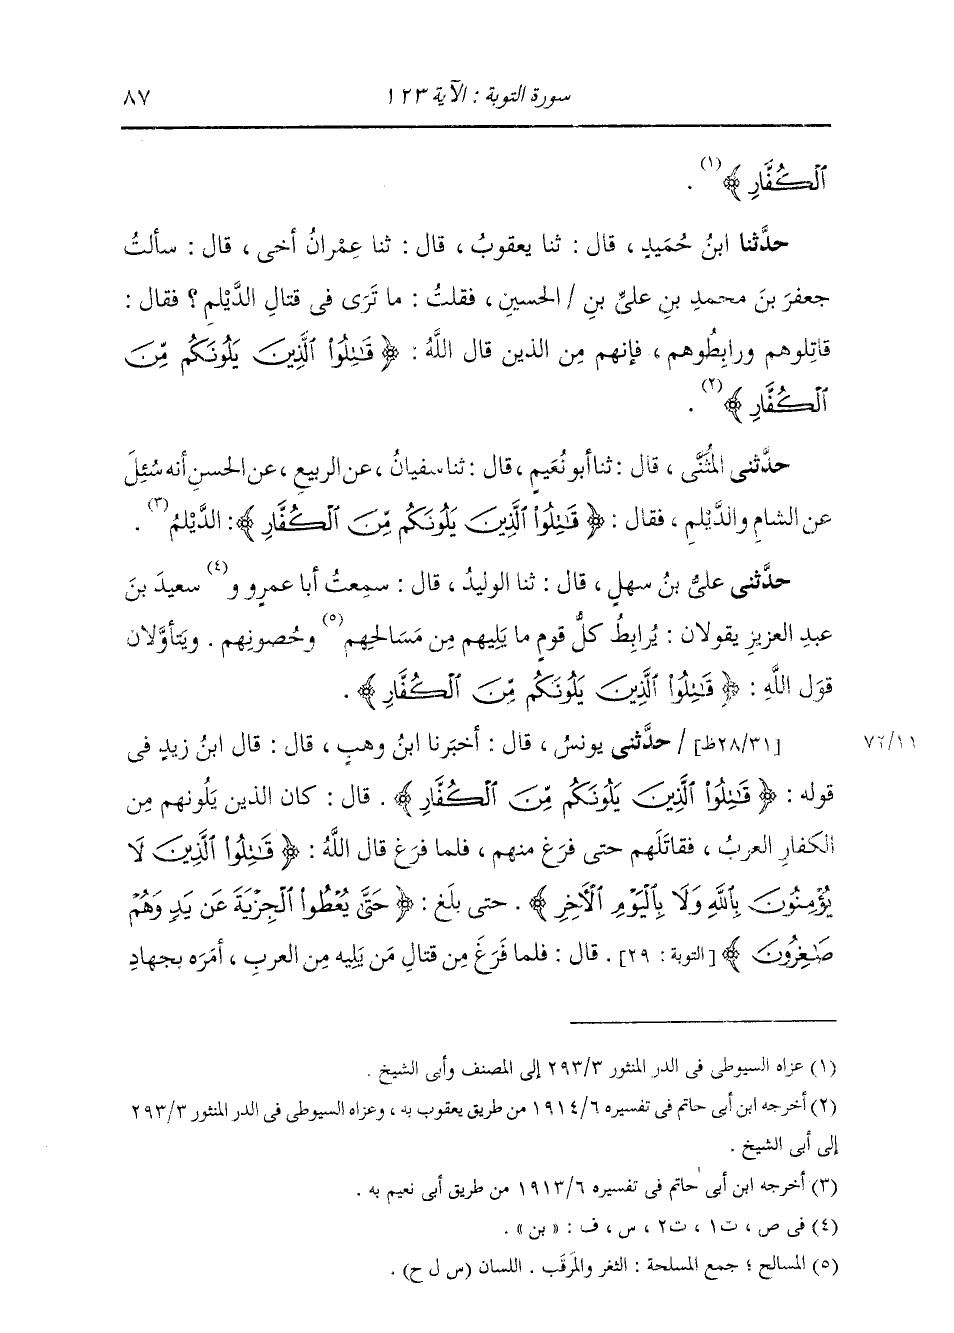 سورة التوبة : الآية ١٢٣ ٨٧
ٱلْكُفَّارِ ﴾(١) .
حدَّثنا ابنُ حُمَيدٍ ، قال : ثنا يعقوبُ ، قال : ثنا عِمْرانُ أخى ، قال : سألتُ
جعفرَ بنَ محمدِ بنِ علىِّ بنِ / الحسينِ ، فقلتُ : ما تَرَى فى قتالِ الدَّيْلمِ ؟ فقال :
قاتِلوهم ورابِطُوهم ، فإنهم مِن الذين قال اللَّهُ : ﴿ قَـٰتِلُوا۟ ٱلَّذِينَ يَلُونَكُم مِّنَ
ٱلْكُفَّارِ ﴾(٢) .
حدَّثنى المُثَنَّى ، قال : ثنا أبو نُعَيمٍ ، قال : ثنا سفيانُ ، عن الربيعِ ، عن الحسنِ أنه سُئِلَ
عن الشامِ والدَّيْلمِ ، فقال : ﴿ قَـٰتِلُوا۟ ٱلَّذِينَ يَلُونَكُم مِّنَ ٱلْكُفَّارِ ﴾ : الدَّيْلمُ(٣) .
حدَّثنى علىُّ بنُ سهلٍ ، قال : ثنا الوليدُ ، قال : سمِعتُ أبا عمرٍو و(٤) سعيدَ بنَ
عبدِ العزيزِ يقولان : يُرابِطُ كلُّ قومٍ ما يَلِيهم مِن مَسَالحِهم(٥) وحُصونِهم . ويَتأوَّلان
قولَ اللَّهِ : ﴿ قَـٰتِلُوا۟ ٱلَّذِينَ يَلُونَكُم مِّنَ ٱلْكُفَّارِ ﴾ .
٧٢/١١ [٢٨/٣١ظ] / حدَّثنى يونسُ ، قال : أخبَرنا ابنُ وهبٍ ، قال : قال ابنُ زيدٍ فى
قوله : ﴿ قَـٰتِلُوا۟ ٱلَّذِينَ يَلُونَكُم مِّنَ ٱلْكُفَّارِ ﴾ . قال : كان الذين يَلُونهم مِن
الكفارِ العربُ ، فقاتَلَهم حتى فرَغ منهم ، فلما فرَغ قال اللَّهُ : ﴿ قَـٰتِلُوا۟ ٱلَّذِينَ لَا
يُؤْمِنُونَ بِٱللَّهِ وَلَا بِٱلْيَوْمِ ٱلْـَٔاخِرِ ﴾ . حتى بلَغ : ﴿ حَتَّىٰ يُعْطُوا۟ ٱلْجِزْيَةَ عَن يَدٍ وَهُمْ
صَـٰغِرُونَ ﴾ [التوبة : ٢٩] . قال : فلما فَرَغَ مِن قتالِ مَن يَلِيه مِن العربِ ، أمَره بجهادِ
(١) عزاه السيوطى فى الدر المنثور ٢٩٣/٣ إلى المصنف وأبى الشيخ .
(٢) أخرجه ابن أبى حاتم فى تفسيره ١٩١٤/٦ من طريق يعقوب به ، وعزاه السيوطى فى الدر المنثور ٢٩٣/٣
إلى أبى الشيخ .
(٣) أخرجه ابن أبى حاتم فى تفسيره ١٩١٣/٦ من طريق أبى نعيم به .
(٤) فى ص ، ت١ ، ت٢ ، س ، ف : « بن » .
(٥) المسالح ؛ جمع المسلحة : الثغر والمَرقَب . اللسان (س ل ح) .